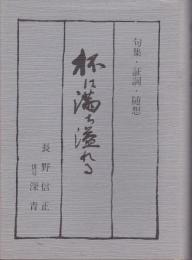 句集・証詞・随想
杯は満ち溢れる
長野信正
俳号 深青